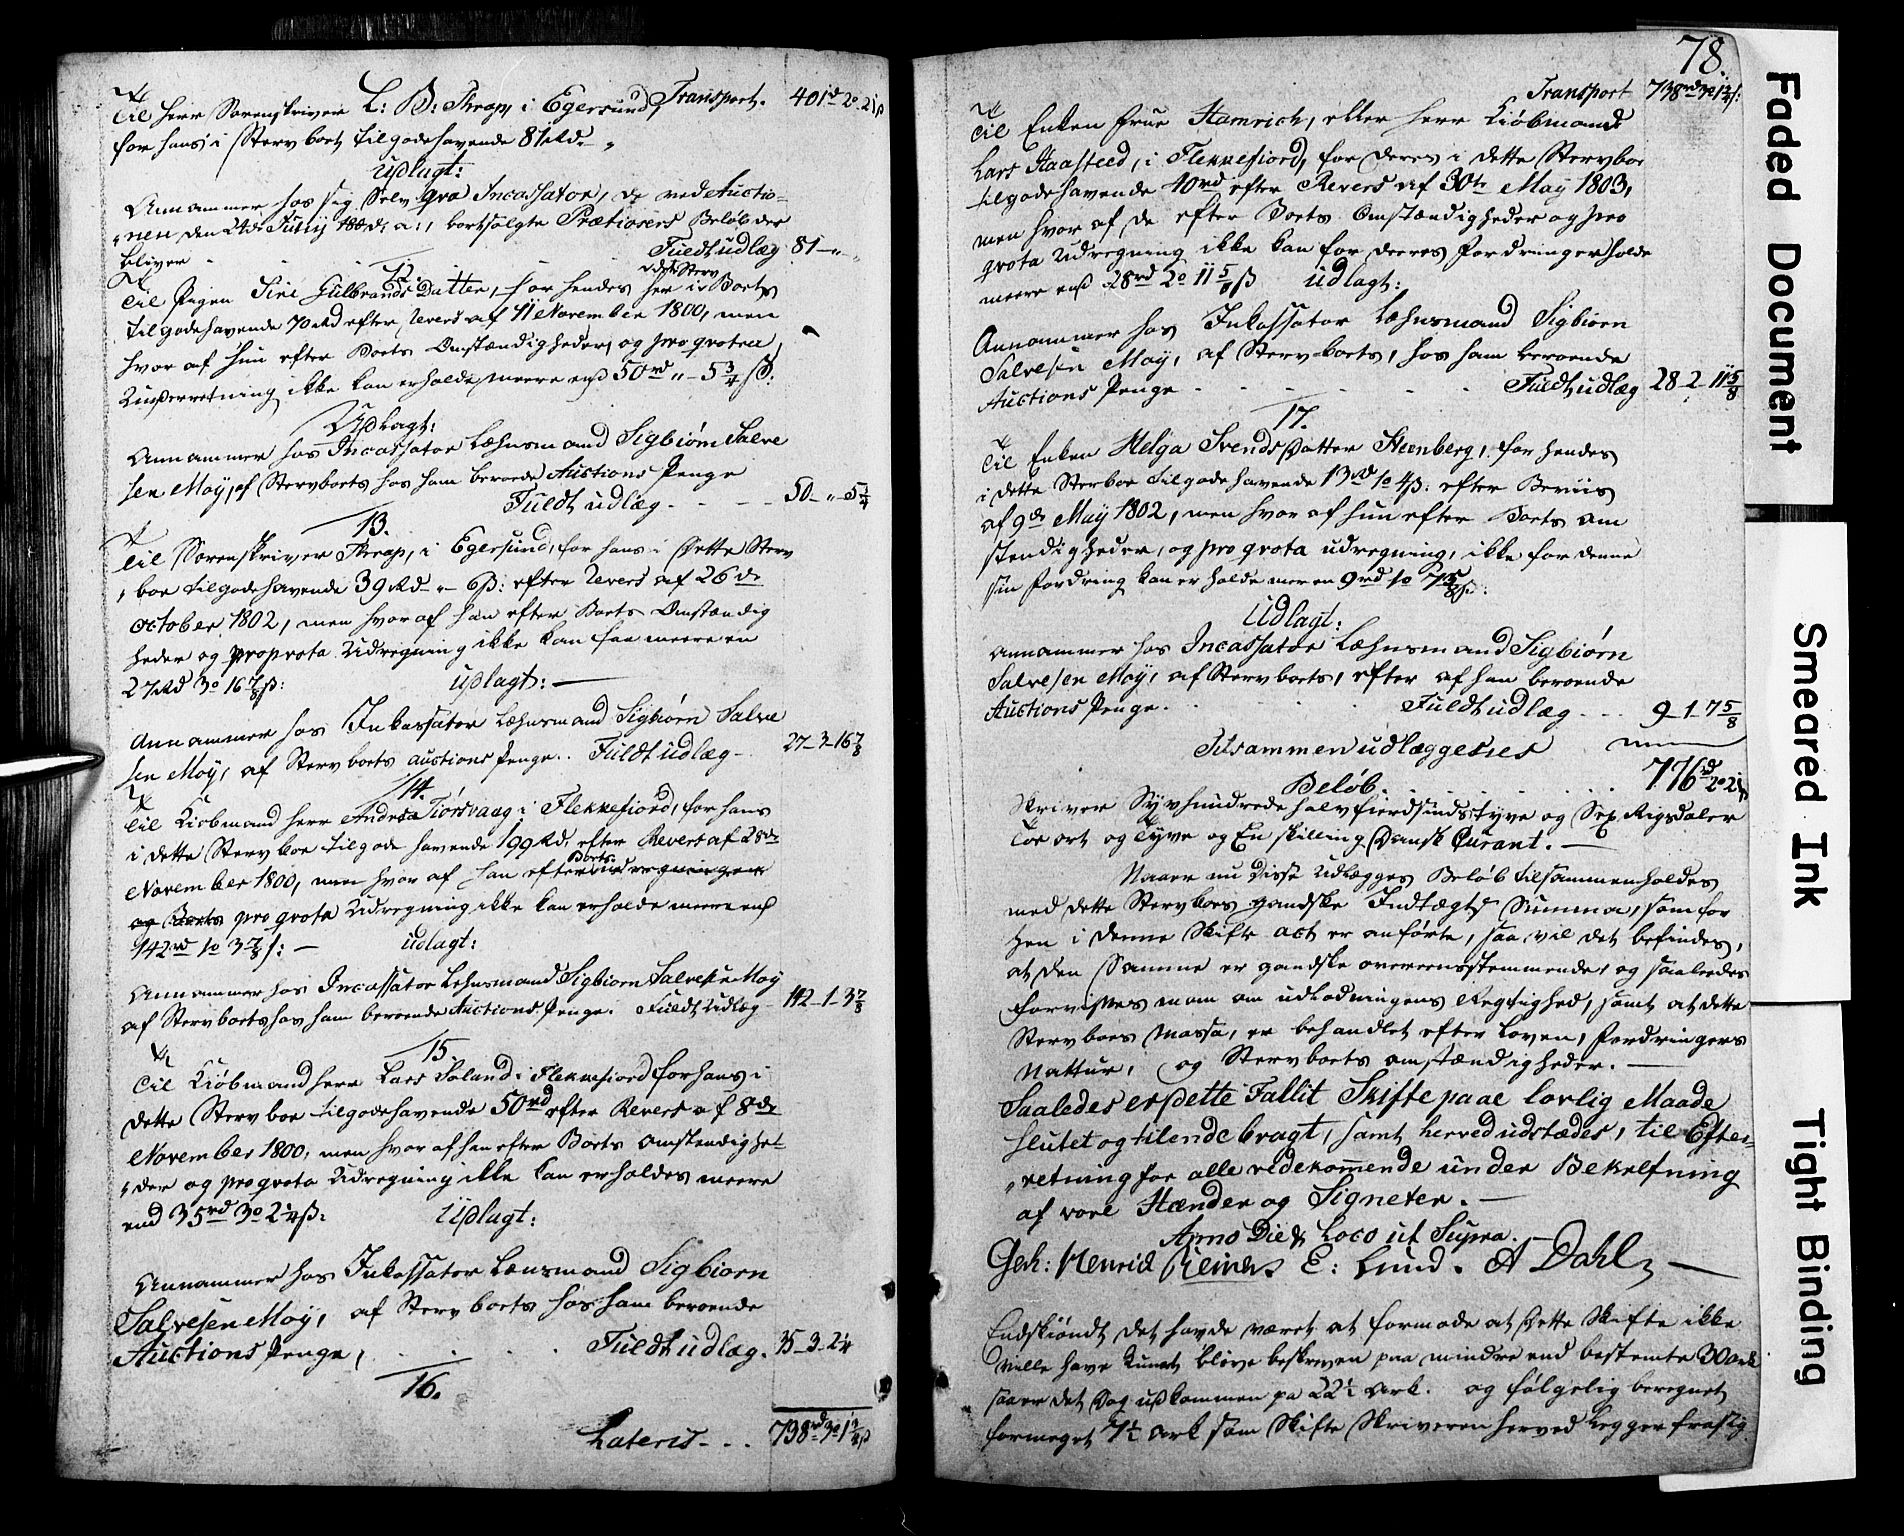 Transport. 401rd 2o 21ß
Til Herr Sorenskriver L: B: Thrap, i Egersund,
for hans i Stervboet tilgodehavende 81 Rd. "
Udlagt:
Annammer hos sig Selv qva Incassator, de ved Auctio-
nen den 24de Juny bortsolgte Prætiosers Beløb der
bliver Fuldt udlæg 81 - " - "
12.
Til Pigen Siri Gulbrands Datter, for hendes her i dette Sterv Boets
tilgodehavende 70 Rd efter Revers af 11 November 1800, men
hvor af hun efter Boets Omstændigheder, og pro qvota
ikke kan erholde meere end 50rd " - 5 3/4 ß:
Udlagt:
Annammer hos Incassator Lehnsmand Sigbiørn Salve
sen Moÿ, af Stervboets hos ham beroende Auctions Penge
Fuldt udlæg - - - 50 - " - 5 3/4
13.
Til Sorenskriver Thrap, i Egersund, for hans i Dette Sterv
boe tilgodehavende 39 Rd - " - 6ß: efter Revers af 26de
October 1802, men hvor af han efter Boets Omstændig
heder og pro qvota Udregning ikke kan faae meere en
27 Rd 3o 16 7/8 ß: Udlagt: —
Annammer hos Inkassator Lehnsmand Sigbiørn Salve
sen Moÿ, af Stervboets auctions Penge. . Fuldt udlæg - 27 - 3 - 16 7/8
14.
Til Kiøbmand Herr Andrea Tiorsvaag i Flekkefiord, for hans
i dette Stervboe tilgode havende 199 Rd, efter Revers af 28de
November 1800, men hvor af han efter Boets udregningen
og Boets pro qvota Udregning ikke kan erholde meere end
142rd 1o 3 7/8 ß: — Udlagt:
Annammer hos Incassator Lehnsmand Sigbiorn Salvesen Moÿ
af Stervboets hos ham beroende Auctions Penge. Fuldt Udlæg - 142 - 1 - 3 7/8
15.
Til Kiøbmand herr Lars Soland i Flekkefiord for hans i
dette Stervboe tilgodehavende 50rd efter Revers af 8de
November 1800, men hvor af han efter Boets Omstendighe-
der og pro qvota Udregning ikke kan erholdes meere
end 35rd 3o 2 1/4 ß: Udlagt:
Annammer hos Inkassator Lænsmand Sigbiorn
Salvesen Moÿ, af Stervboets hos ham beroende
Auctions Penge, . . . . Fuldt udlæg. 35 - 3 - 2 1/4
16.
Lateris - . . 738rd 3o 1 3/4 ß
78.
Transport 738rd 3o 1 3/4 ß:
Til Enken Frue Stamrich, eller Herr Kiøbmand
Lars Staasteed, i Flekkefiord, for deres i dette Stervboe
tilgodehavende 40rd efter Revers af 30te May 1803,
men hvor af de efter Boets Omstændigheder og pro
qvota Udregning ikke kan for deres Fordringer holde
meere end 28rd 2o 11 5/8 ß Udlagt:
Annammer hos Inkassator Lehnsmand Sigbiorn
Salvesen Moÿ, af Stervboets, hos ham beroende
Auctions Penge - - - - - Fuldt udlæg 28 - 2 - 11 5/8
17.
Til Enken Helga Svends Datter Steenberg, for hendes
i dette Sterboe tilgodehavende 13rd 1o 4ß: efter Beviis
af 9de May 1802, men hvor af hun efter Boets Om
stendigheder, og pro qvota udregning, ikke for denne
sin Fordring kan erholde mere en 9rd 1o 7 5/8 ß:
Udlagt:
Annammer hos Incassator Lehnsmand Sigbiørn
Salvesen Moÿ, af Stervboets, efter af ham beroende
Auctions Penge. . . . Fuldt udlæg - - - 9 - 1 - 7 5/8
Tilsammen udlæggelses
Beløb. . . . . . 776rd 2o 21ß
Skriver Syvhundrede halvfierdsindstyve og Sex Rigsdaler
Toe ort og Tyve og En skilling Dansk Curant. —
Naar nu Disse Udlægges Beløb tilsammenholdes
med dette Stervboes gandske Indtægts Summa, som for
hen i denne Skifte act er anførte, saa vil det befindes,
at den Samme er gandske overeensstemmende, og saaledes
forvisses mom om udlodningens Rigtighed, samt at dette
Stervboes Massa, er behandlet efter Loven, Fordringers
Nattur, og Stervboets omstændigheder. —
Saaledes er Dette Fallit Skifte paae lovlig Maade
Slutet og tilende bragt, samt herved udstædes, til Efter-
retning for alle vedkom̄ende under Bekreftning
af vore Hænder og Signeter. —
Anno Die & Loco ut Supra.
Geh: Henrich Reiners E: Lund. A Dahl —
Endskiøndt det havde været at formode at Dette Skifte ikke
ville have kunet bleve beskreven paa mindre end bestemte 30 ark
saa er det Dog udkommen pa 22 1/2 Ark. og følgelig beregnet
formeget 7 1/2 Ark som Skifte Skriveren herved Legger fra sig
Faded Document
Smeared Ink
Tight Binding